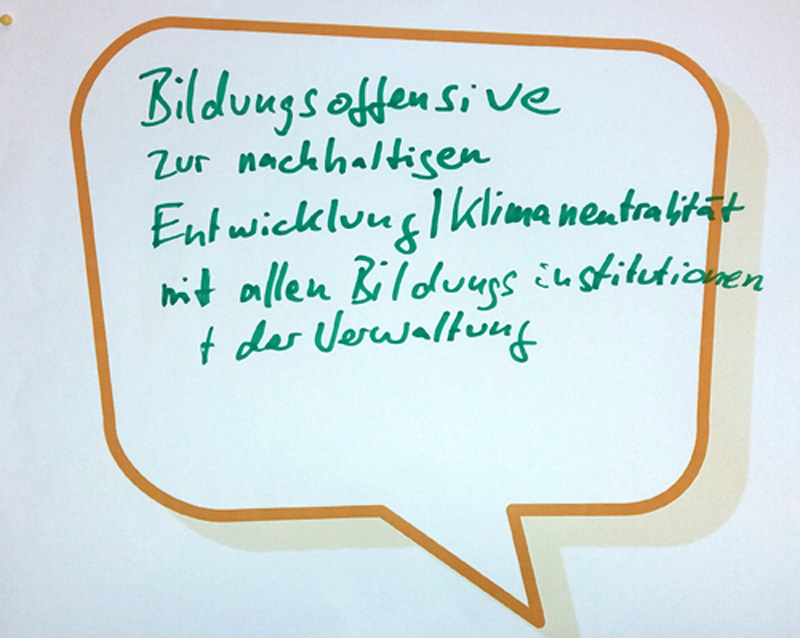 Bildungsoffensive
zur nachhaltigen
Entwicklung/Klimaneutralität
mit allen Bildungsinstitutionen
+ der Verwaltung